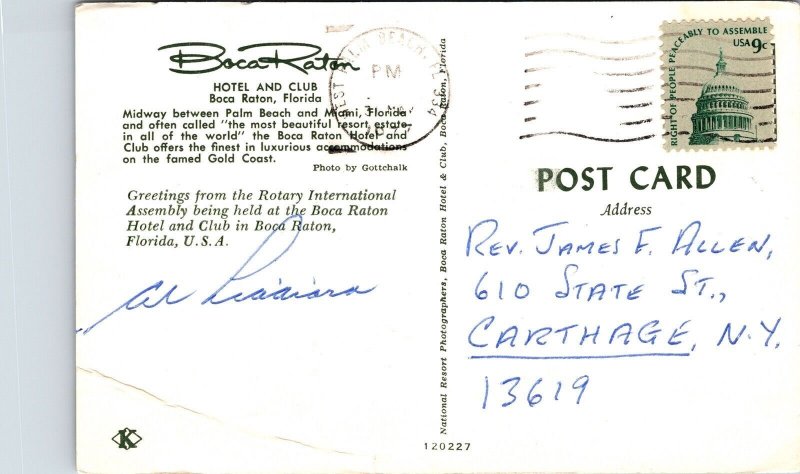 Boca Raton
HOTEL AND CLUB
Boca Raton, Florida
Midway between Palm Beach and Miami, Florida
and often called "the most beautiful resort estate
in all of the world" the Boca Raton Hotel and
Club offers the finest in luxurious accommodations
on the famed Gold Coast.
Photo by Gottchalk
Greetings from the Rotary International
Assembly being held at the Boca Raton
Hotel and Club in Boca Raton,
Florida, U.S.A.
Al
K
National Resort Photographers, Boca Raton Hotel & Club, Boca Raton, Florida
120227
WEST PALM BEACH, FL 334
PM
MAY
RIGHT OF PEOPLE PEACEABLY TO ASSEMBLE
USA 9c
POST CARD
Address
REV. JAMES F. ALLEN,
610 STATE ST.,
CARTHAGE, N.Y.
13619